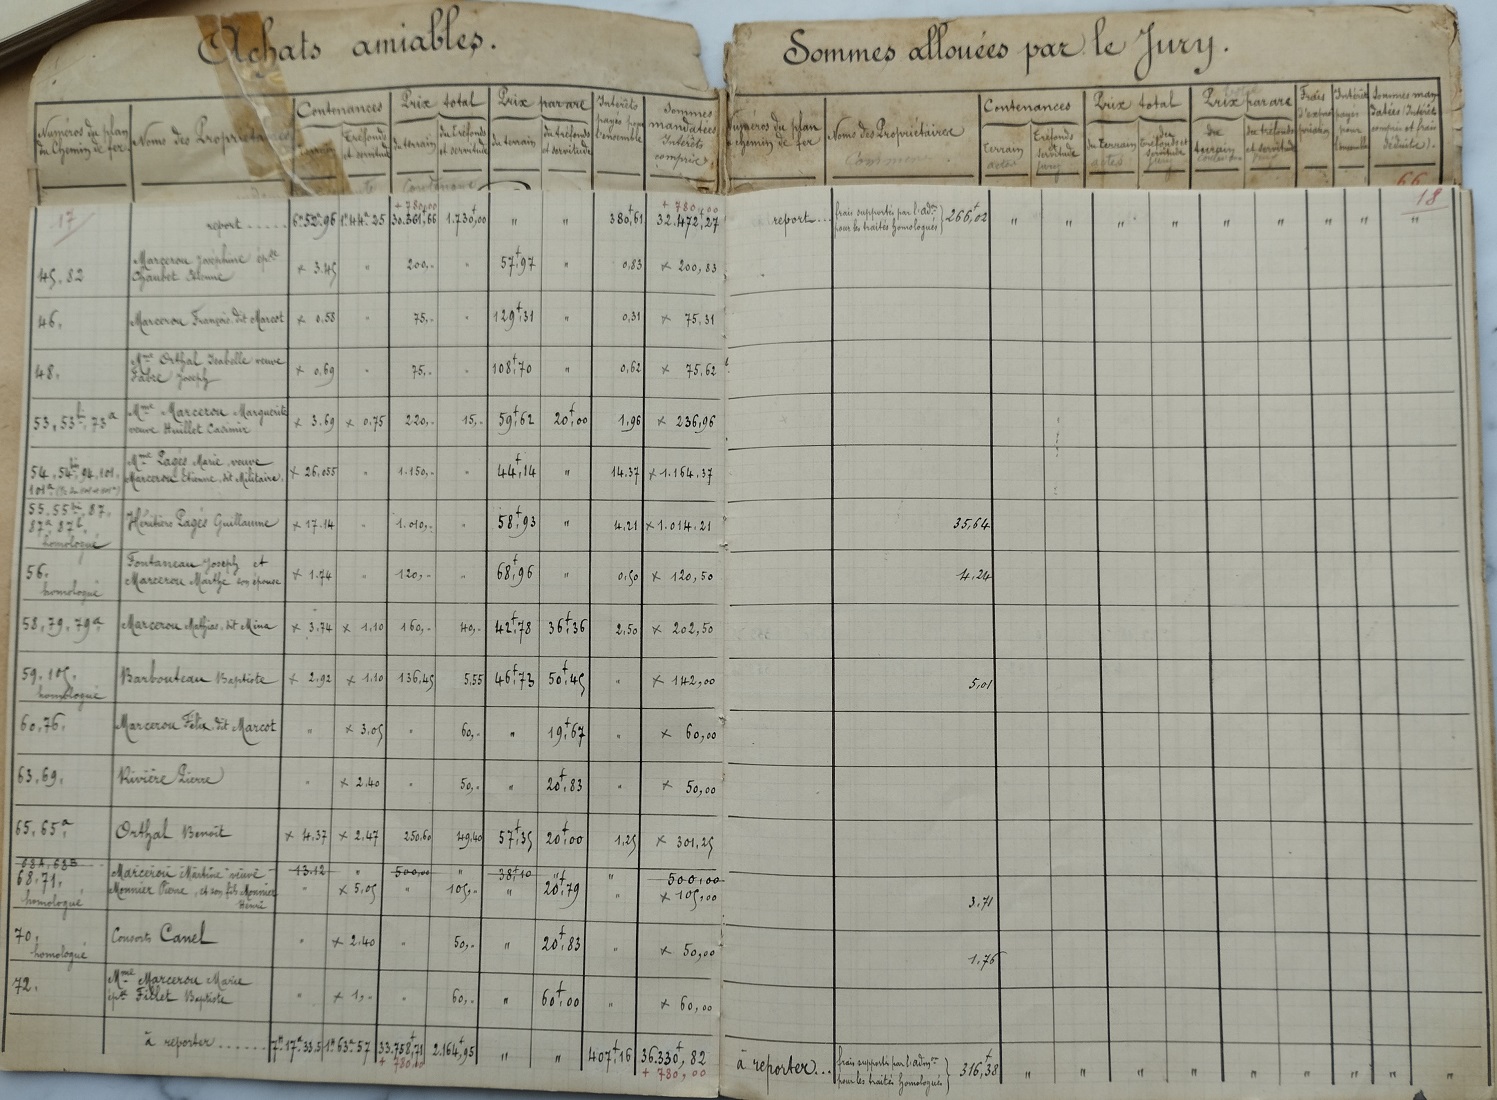 Achats amiables.
Numéros du plan du Chemin de fer. Noms des Propriétaires Contenances Terrain Tréfonds et servitude Prix total du terrain du tréfonds et servitude Prix par are du terrain du tréfonds et servitude Intérêts payés pour l'ensemble Sommes mandatées Intérêts compris.
17
+ 780,00 + 780,00
report ..... 6h52a96 1h44a25 30.361,66 1.730f,00 " " 380f,61 32.472f,27
45, 82 Marcerou Joséphine épse Chaubet Etienne × 3.45 " 200,- " 57f,97 " 0,83 × 200,83
46. Marcerou François dit Marcot × 0.58 " 75,- " 129f,31 " 0,31 × 75,31
48. Mme Orthal Isabelle veuve Fabre Joseph × 0.69 " 75,- " 108f,70 " 0,62 × 75,62
53, 53b, 73a Mme Marcerou Marguerite veuve Huillet Casimir × 3.69 × 0.75 220,- 15,- 59f,62 20f,00 1,96 × 236,96
54, 54bis, 94, 101, 101a Mme Pagès Marie, veuve Marcerou Etienne, dit Militaire. × 26.055 " 1.150,- " 44f,14 " 14,37 × 1.164,37
55, 55bis, 87, 87a, 87b, homologué Héritière Pagès Guillaume × 17.14 " 1.010,- " 58f,93 " 4,21 × 1.014,21
56. homologué Fontaneau Joseph et Marcerou Marthe son épouse × 1.74 " 120,- " 68f,96 " 0,50 × 120,50
58, 79, 79a. Marcerou Mathias, dit Mina × 3.74 × 1.10 160,- 40,- 42f,78 36f,36 2,50 × 202,50
59, 105. homologué Barbouteau Baptiste × 2.92 × 1.10 136,45 5,55 46f,73 50f,45 " × 142,00
60, 76. Marcerou Félix, dit Marcot " × 3.05 " 60,- " 19f,67 " × 60,00
63, 69. Rivière Pierre " × 2.40 " 50,- " 20f,83 " × 50,00
65, 65a. Orthal Benoît × 4.37 × 2.47 250,60 49,40 57f,35 20f,00 1,25 × 301,25
68A, 68B Marcerou Martine veuve 13.12 " 500,00 " 38f,10 " " 500,00
68, 71. homologué Monnier Pierre, et son fils Monnier Henri " × 5.05 " 105,- " 20f,79 " × 105,00
70. homologué Consorts Canel " × 2.40 " 50,- " 20f,83 " × 50,00
72. Mme Marcerou Marie épse Fillet Baptiste " × 1,- " 60,- " 60f,00 " × 60,00
à reporter ...... 7h17a33.5 1h63a57 33.758f,71 2.164f,95 " " 407f,16 36.330f,82
+ 780,00 + 780,00
Sommes allouées par le Jury.
Numéros du plan du chemin de fer. Noms des Propriétaires Contenances Terrain Tréfonds et servitude Prix total du Terrain du Tréfonds et servitude Prix par are du terrain du tréfonds et servitude Frais Intérêts payés pour l'ensemble Sommes mandatées
66
18
report... frais supportés par l'adon pour les traités homologués } 266f,02 " " " " " " " " "
35,64
4,24
5,01
3,71
1,76
à reporter... frais supportés par l'admon pour les traités homologués } 316f,38 " " " " " " " " "